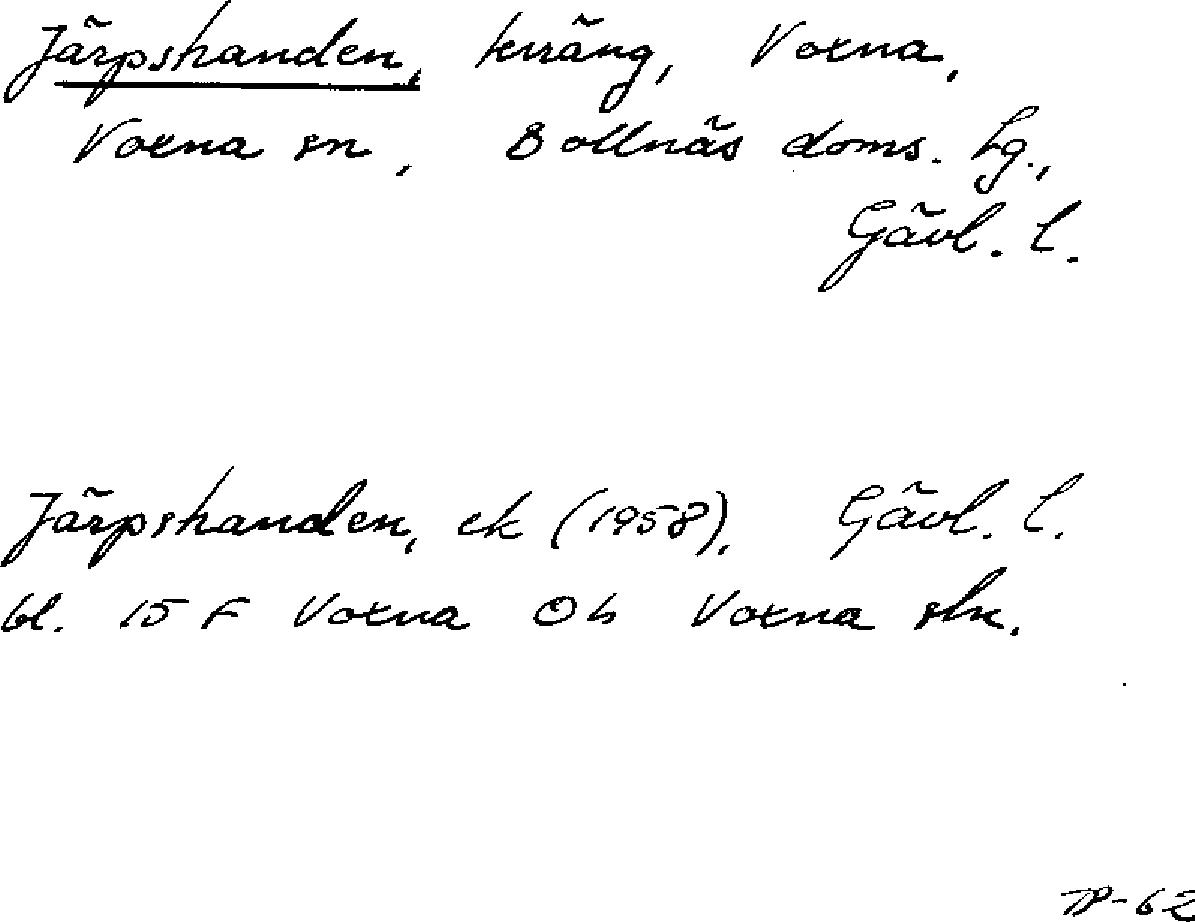 Järpshanden, kräng, Voxna,
Voxna sn, Bollnäs doms. hg.,
Gävl. l.
Järpshanden, ek (1958), Gävl. l.
bl. 15 F Voxna Oh Voxna skn.
TP-62